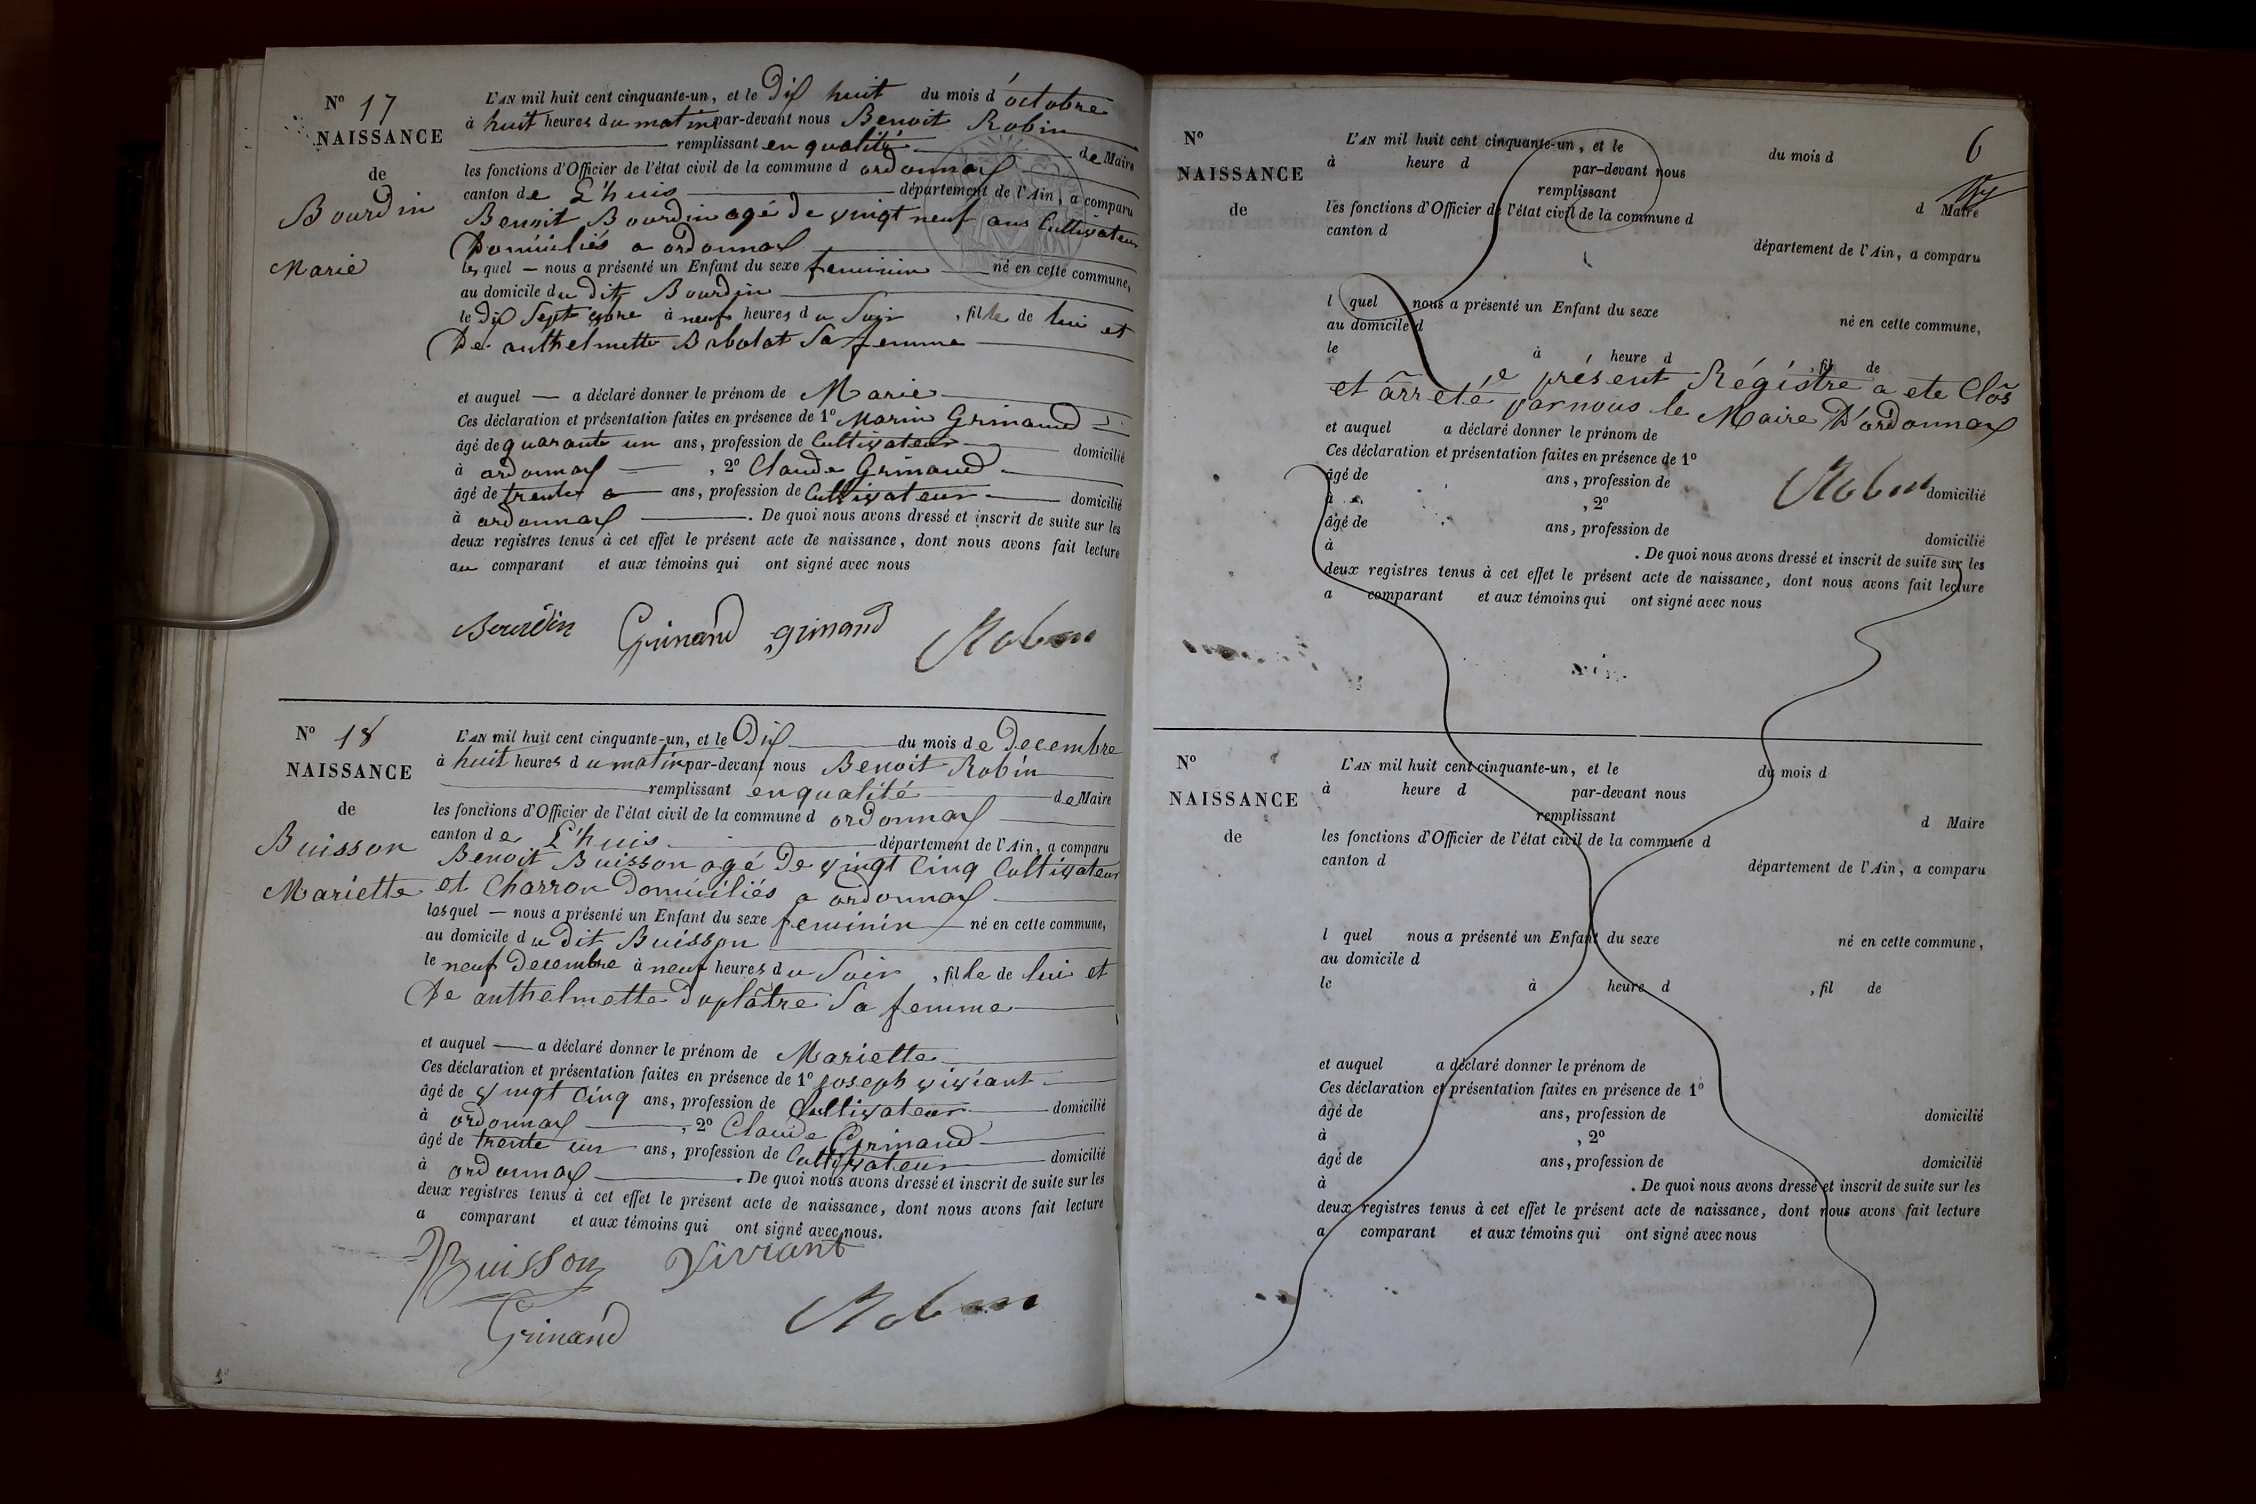 N° 17
NAISSANCE
de
Bourdin
Marie
L'AN mil huit cent cinquante-un, et le Dix huit du mois d'octobre
à huit heures du matin par-devant nous Benoit Robin
remplissant en qualité de Maire
les fonctions d'Officier de l'état civil de la commune d ordonnax
canton de L'huis département de l'Ain, a comparu
Benoit Bourdin agé de vingt neuf ans Cultivateur
Domiciliés a ordonnax
lesquel nous a présenté un Enfant du sexe feminin né en cette commune,
au domicile du dit Bourdin
le Dix Sept à neuf heures du Soir, fille de lui et
De anthelmette Babolat Sa femme
et auquel a déclaré donner le prénom de Marie
Ces déclaration et présentation faites en présence de 1° Marin Grinand
âgé de quarante un ans, profession de Cultivateur domicilié
à ordonnax, 2° Claude Grinand
âgé de trente ans, profession de Cultivateur domicilié
à ordonnax. De quoi nous avons dressé et inscrit de suite sur les
deux registres tenus à cet effet le présent acte de naissance, dont nous avons fait lecture
au comparant et aux témoins qui ont signé avec nous
Bourdin Grinand grinand Robin
N° 18
NAISSANCE
de
Buisson
Mariette
L'AN mil huit cent cinquante-un, et le Dix du mois de decembre
à huit heures du matin par-devant nous Benoit Robin
remplissant en qualité de Maire
les fonctions d'Officier de l'état civil de la commune d ordonnax
canton de L'huis département de l'Ain, a comparu
Benoit Buisson agé De vingt Cinq Cultivateur
et Charron Domiciliés a ordonnax
lesquel nous a présenté un Enfant du sexe feminin né en cette commune,
au domicile du dit Buisson
le neuf Decembre à neuf heures du Soir, fille de lui et
De anthelmette Duplâtre Sa femme
et auquel a déclaré donner le prénom de Mariette
Ces déclaration et présentation faites en présence de 1° joseph viviant
âgé de vingt Cinq ans, profession de Cultivateur domicilié
à ordonnax, 2° Claude Grinand
âgé de trente un ans, profession de Cultivateur domicilié
à ordonnax. De quoi nous avons dressé et inscrit de suite sur les
deux registres tenus à cet effet le présent acte de naissance, dont nous avons fait lecture
a comparant et aux témoins qui ont signé avec nous.
Buisson Viviant
Grinand Robin
6
N°
NAISSANCE
de
L'AN mil huit cent cinquante-un, et le du mois d
à heure d par-devant nous
remplissant d Maire
les fonctions d'Officier de l'état civil de la commune d
canton d département de l'Ain, a comparu
l quel nous a présenté un Enfant du sexe né en cette commune,
au domicile d
le à heure d, fil de
e présent Régistre a ete Clos
et arreté par nous le Maire D'ordonnax
et auquel a déclaré donner le prénom de
Ces déclaration et présentation faites en présence de 1°
Robin
âgé de ans, profession de domicilié
à, 2°
âgé de ans, profession de domicilié
à. De quoi nous avons dressé et inscrit de suite sur les
deux registres tenus à cet effet le présent acte de naissance, dont nous avons fait lecture
a comparant et aux témoins qui ont signé avec nous
N°
NAISSANCE
de
L'AN mil huit cent cinquante-un, et le du mois d
à heure d par-devant nous
remplissant d Maire
les fonctions d'Officier de l'état civil de la commune d
canton d département de l'Ain, a comparu
l quel nous a présenté un Enfant du sexe né en cette commune,
au domicile d
le à heure d, fil de
et auquel a déclaré donner le prénom de
Ces déclaration et présentation faites en présence de 1°
âgé de ans, profession de domicilié
à, 2°
âgé de ans, profession de domicilié
à. De quoi nous avons dressé et inscrit de suite sur les
deux registres tenus à cet effet le présent acte de naissance, dont nous avons fait lecture
a comparant et aux témoins qui ont signé avec nous